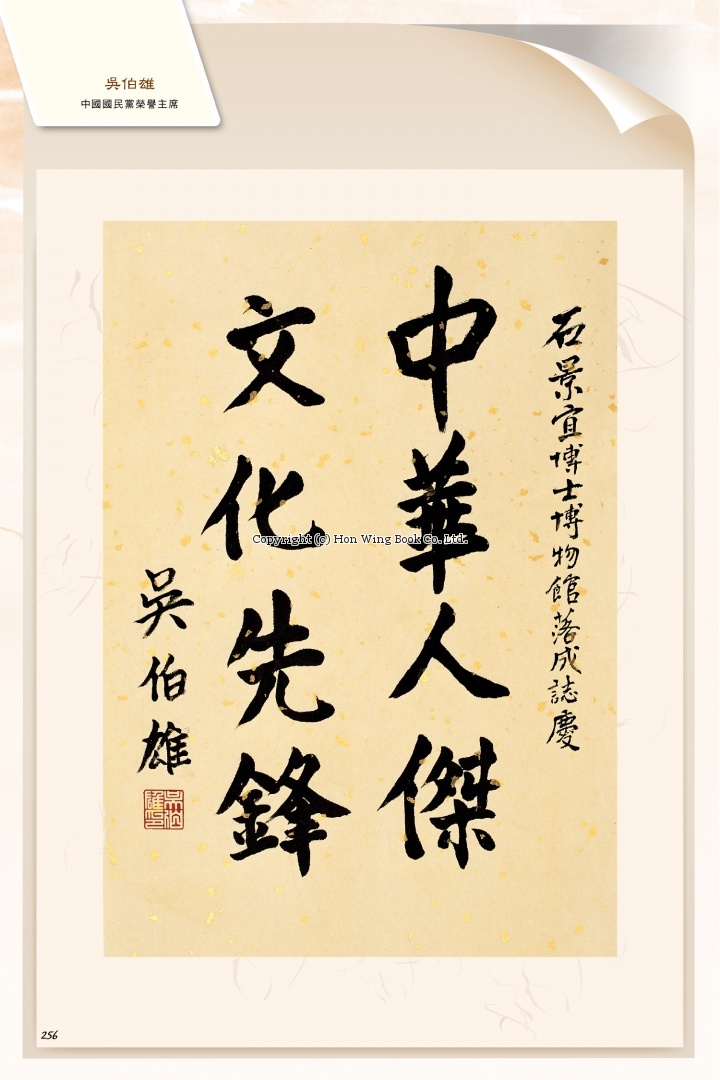 吳伯雄
中國國民黨榮譽主席
石景宜博士博物館落成誌慶
中華人傑
文化先鋒
吳伯雄
Copyright (c) Hon Wing Book Co. Ltd.
256